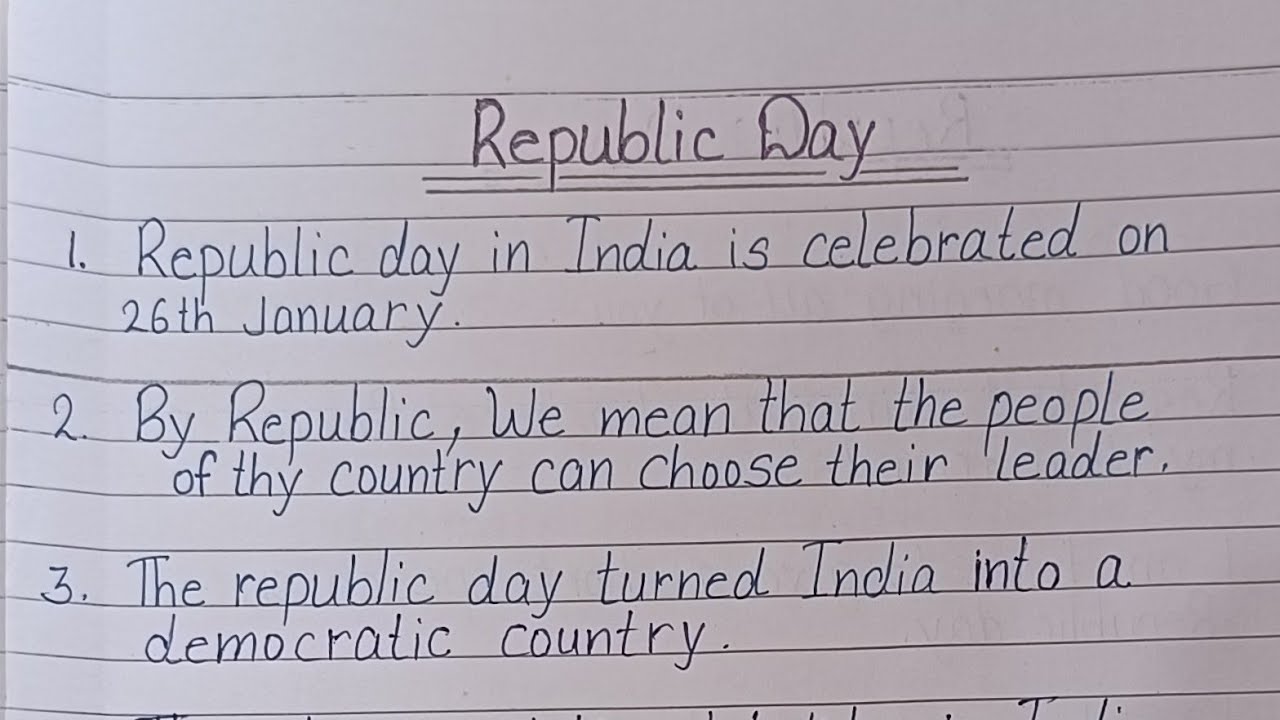 Republic Day
1. Republic day in India is celebrated on
26th January.
2. By Republic, We mean that the people
of thy country can choose their leader.
3. The republic day turned India into a
democratic country.